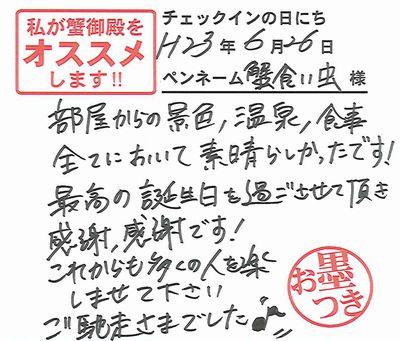 私が蟹御殿を
オススメ
します!!
チェックインの日にち
H23年6月26日
ペンネーム 蟹食い虫 様
部屋からの景色,温泉,食事
全てにおいて素晴らしかったです!
最高の誕生日を過ごさせて頂き
感謝,感謝です!
これからも多くの人を楽
しませて下さい
ご馳走さまでした♪
お墨つき